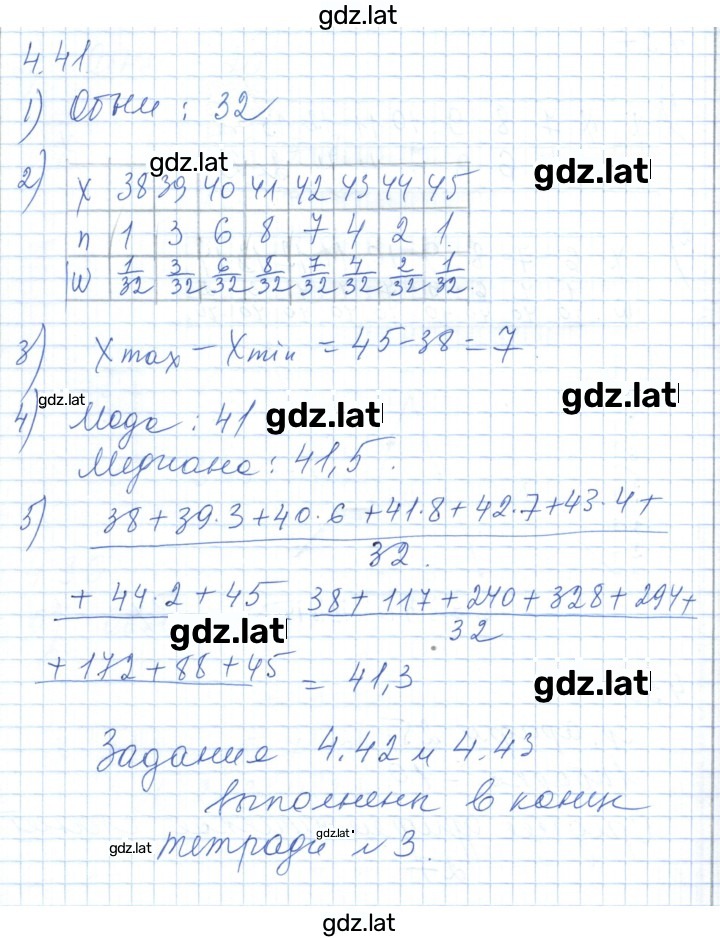 gdz.lat
4.41
1) Объём : 32
gdz.lat
2) X 38 39 40 41 42 43 44 45
gdz.lat
n 1 3 6 8 7 4 2 1
W 1/32 3/32 6/32 8/32 7/32 4/32 2/32 1/32
3) Xmax − Xmin = 45−38 = 7
gdz.lat
gdz.lat
4) Мода : 41
gdz.lat
Медиана : 41,5.
5) 38+39·3+40·6+41·8+42·7+43·4+
32
+ 44·2 + 45 38 + 117 + 240 + 328 + 294+
gdz.lat
32
+ 172 + 88 + 45 = 41,3
gdz.lat
Задания 4.42 и 4.43
выполнены в конце
gdz.lat тетради gdz.lat №3.
gdz.lat